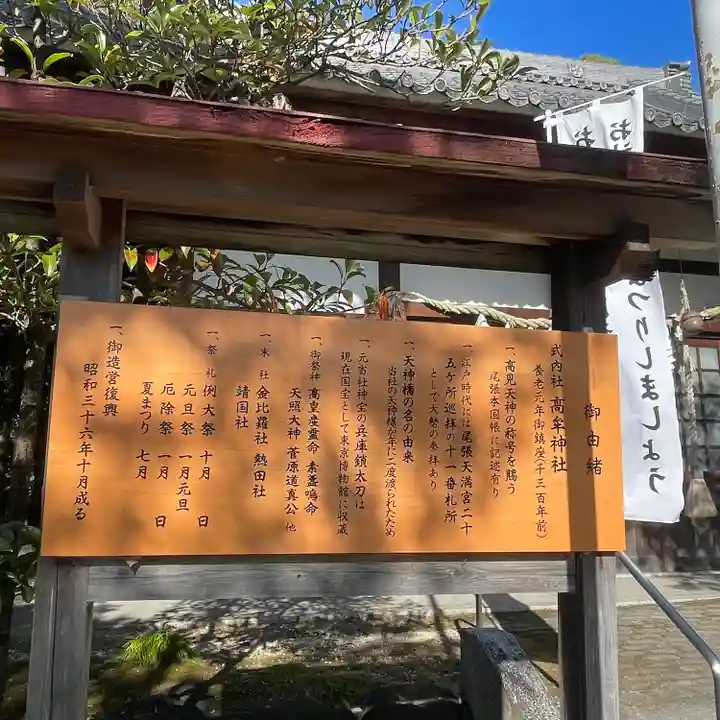 御由緒
式内社 高牟神社
養老元年御鎮座(千三百年前)
一、高見天神の称号を賜う
尾張本国帳に記述有り
一、江戸時代には尾張天満宮二十
五ヶ所巡拝の十一番札所
として大勢の参拝あり
一、天神橋の名の由来
当社の天神様が年に二度渡られたため
一、元当社神宝の兵庫鎖太刀は
現在国宝として東京博物館に収蔵
一、御祭神 高皇産霊命 素盞嗚命
天照大神 菅原道真公 他
一、末社 金比羅社 熱田社
靖国社
一、祭礼 例大祭 十月 日
元旦祭 一月元旦
厄除祭 一月 日
夏まつり 七月
一、御造営復興
昭和三十六年十月成る
つりしましょう
お
お